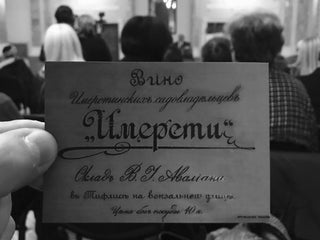 Вино
Имеретинскихъ садовладельцевъ
„Имерети“
Складъ В. І. Авалиани
въ Тифлисѣ на вокзальной улицѣ.
Цѣна безъ посуды 40 к.